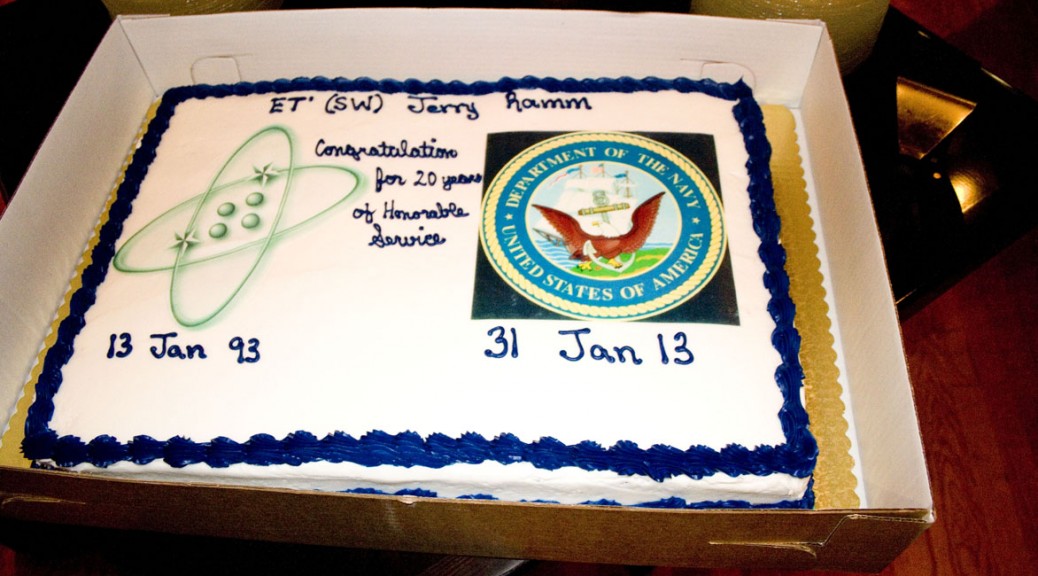 ET' (SW) Jerry Ramm
Congratulation
for 20 years
of Honorable
Service
DEPARTMENT OF THE NAVY
UNITED STATES OF AMERICA
13 Jan 93
31 Jan 13